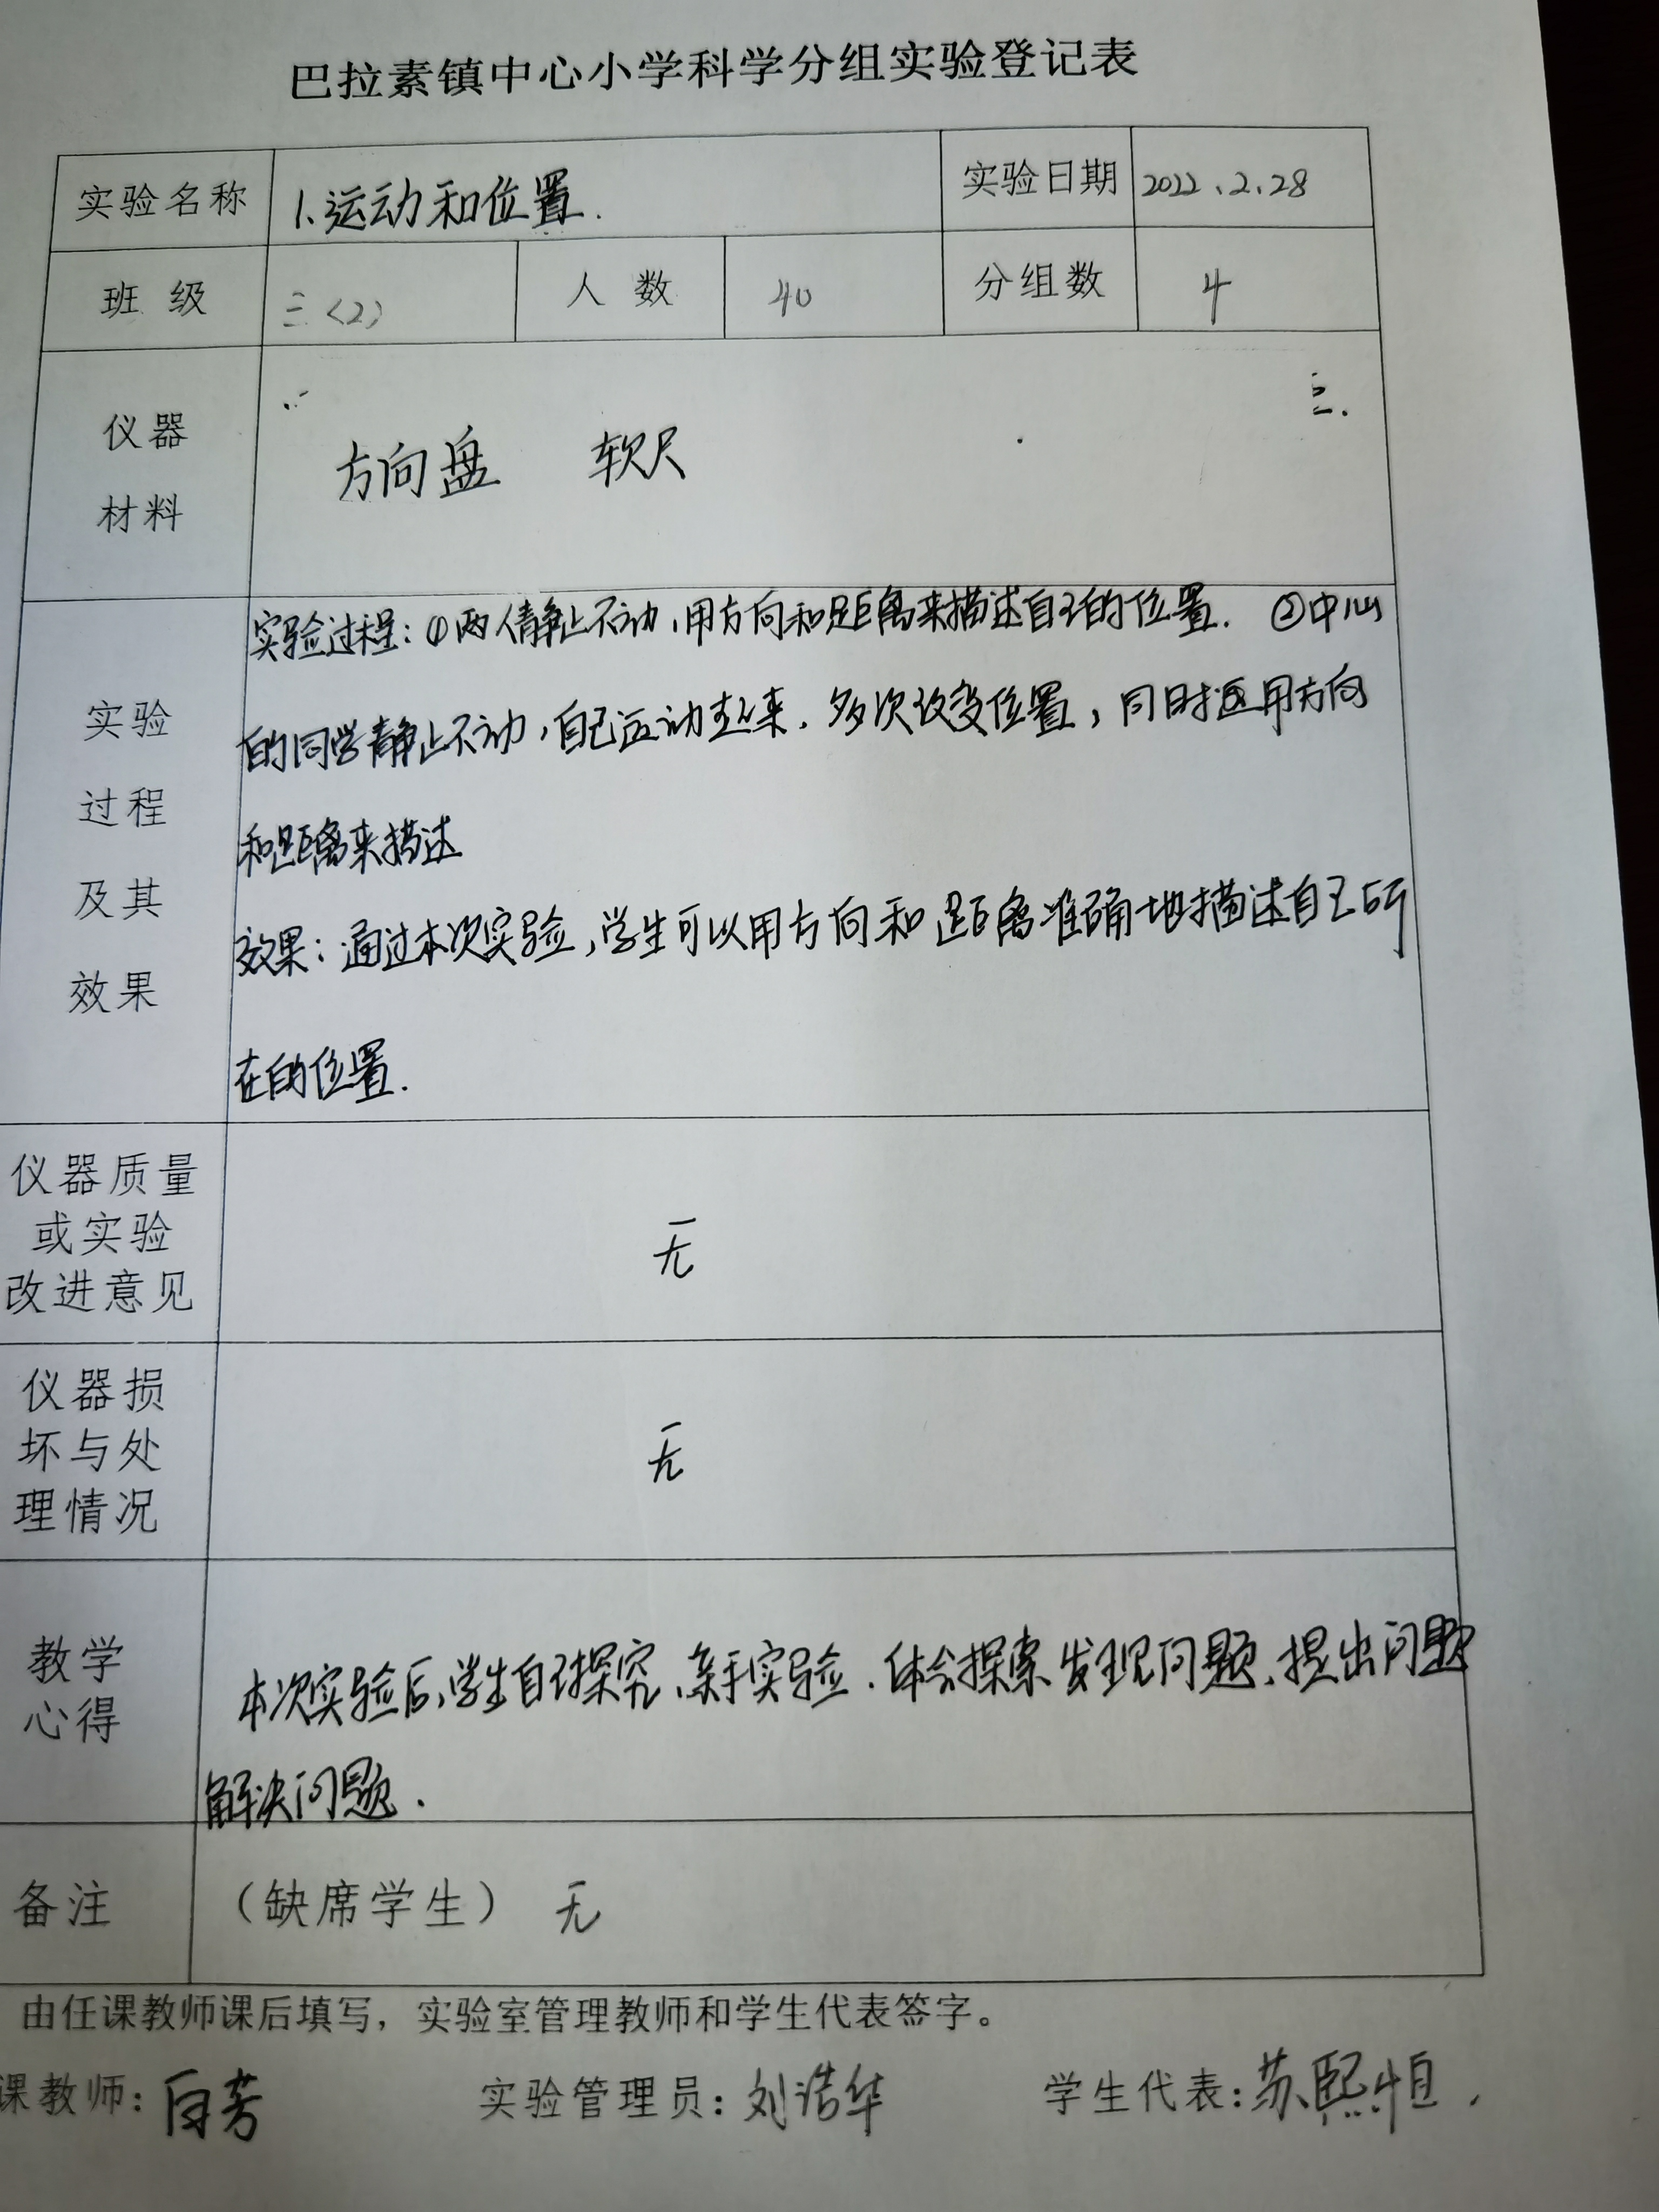 巴拉素镇中心小学科学分组实验登记表
实验名称 1.运动和位置. 实验日期 2022.2.28
班级 三(2) 人数 40 分组数 4
仪器
材料
方向盘 软尺
实验
过程
及其
效果
实验过程:①两人静止不动,用方向和距离来描述自己的位置. ②中心
的同学静止不动,自己运动起来,多次改变位置,同时运用方向
和距离来描述
效果:通过本次实验,学生可以用方向和距离准确地描述自己所
在的位置.
仪器质量
或实验
改进意见
无
仪器损
坏与处
理情况
无
教学
心得
本次实验后,学生自己探究、亲手实验.体会探索发现问题、提出问题
解决问题.
备注 (缺席学生) 无
由任课教师课后填写,实验室管理教师和学生代表签字。
课教师:白芳 实验管理员:刘浩华 学生代表:苏熙恒.